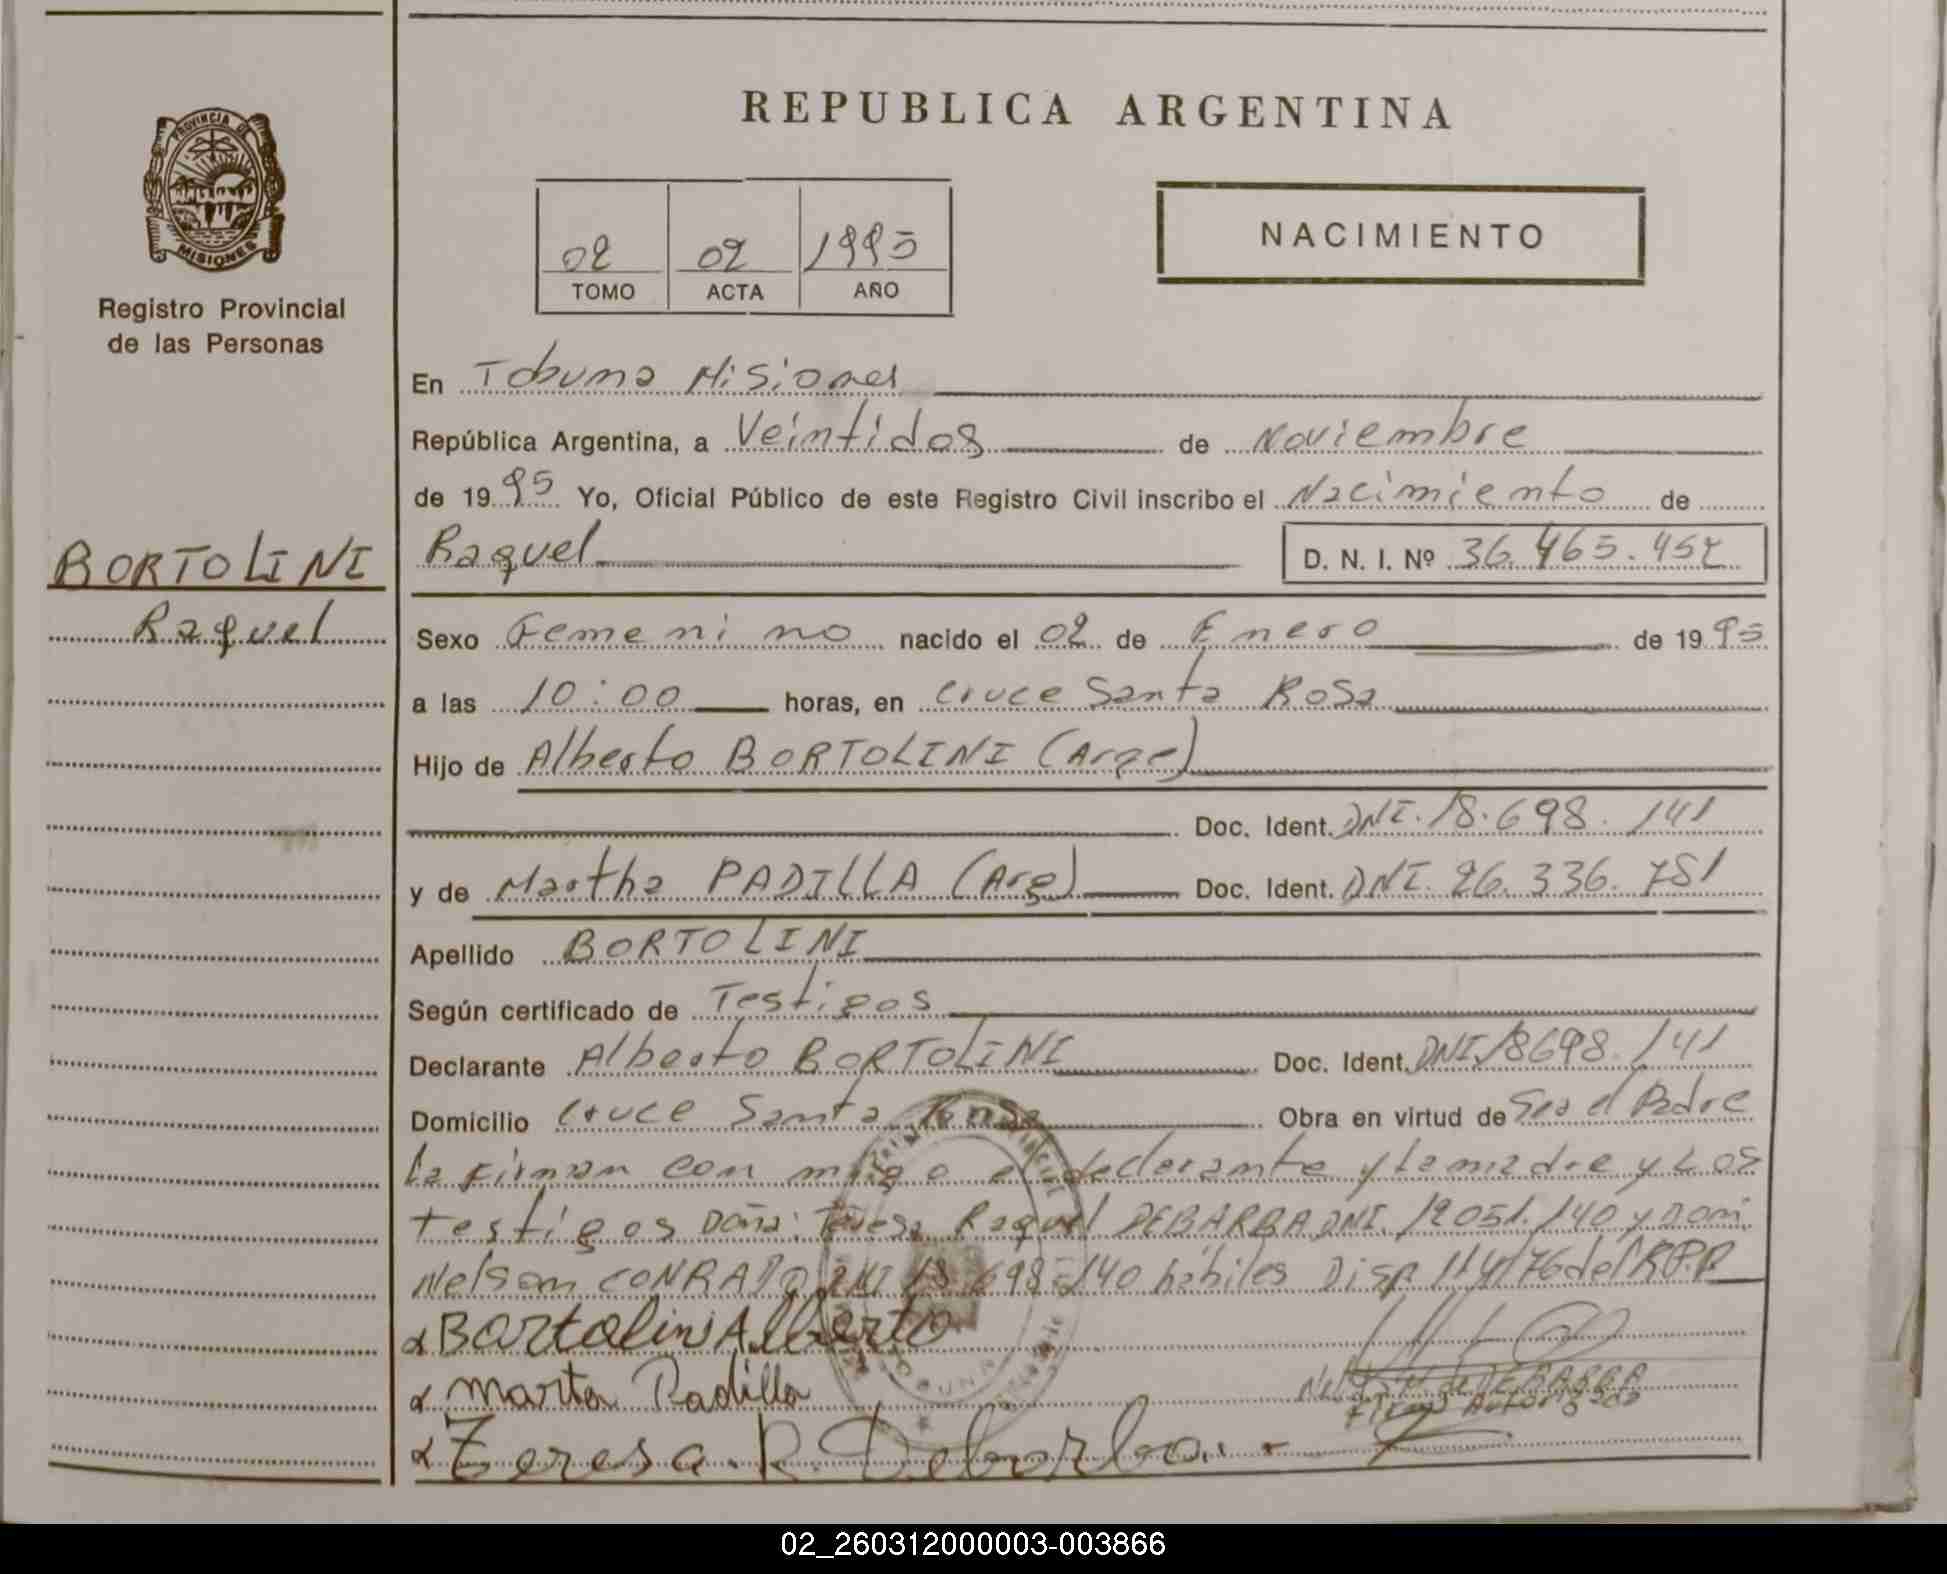 REPUBLICA ARGENTINA
PROVINCIA DE
MISIONES
Registro Provincial
de las Personas
02 02 1995
TOMO ACTA AÑO
NACIMIENTO
En Tobuna Misiones
República Argentina, a Veintidos de Noviembre
de 1995 Yo, Oficial Público de este Registro Civil inscribo el Nacimiento de
BORTOLINI
Raquel
Raquel D. N. I. Nº 36.465.452
Sexo Femenino nacido el 02 de Enero de 1995
a las 10:00 horas, en Cruce Santa Rosa
Hijo de Alberto BORTOLINI (Arge)
Doc. Ident. DNI. 18.698.141
y de Martha PADILLA (Arg) Doc. Ident. DNI. 26.336.781
Apellido BORTOLINI
Según certificado de Testigos
Declarante Alberto BORTOLINI Doc. Ident. DNI 18698.141
Domicilio Cruce Santa Rosa Obra en virtud de Ser el Padre
La Firman con migo el declarante y La madre y Los
testigos Doña: Teresa Raquel DEBARBA DNI. 12051.140 y Don:
Nelson CONRADO DNI 18.698.140 hábiles Disp. 114/76 del R.P.P
x Bortolini Alberto
x Marta Padilla
x Teresa. R. Debarba.
DEBARBA
02_260312000003-003866